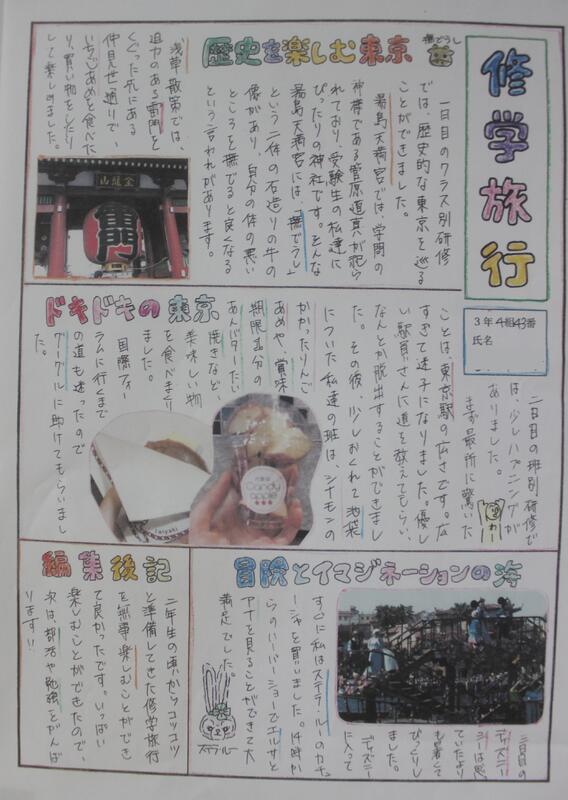 修学旅行
3年4組43番
氏名
歴史を楽しむ東京
撫でうし
一日目のクラス別研修
では、歴史的な東京を巡る
ことができました。
湯島天満宮では、学問の
神様である菅原道真が祀ら
れており、受験生の私達に
ぴったりの神社です。そんな
湯島天満宮には、「撫でうし」
という二体の石造りの牛の
像があり、自分の体の悪い
ところを撫でると良くなる
という言われがあります。
浅草散策では、
迫力のある雷門を
くぐった先にある
仲見世通りで、
いちごあめを食べた
り、買い物をしたり
して楽しみました。
金龍山
雷門
ドキドキの東京
二日目の班別研修で
は、少しハプニングが
ありました。
まず最初に驚いた
ことは、東京駅の広さです。広
すぎて迷子になりました。優し
い駅員さんに道を教えてもらい、
なんとか脱出することができまし
た。その後、少しおくれて池袋
についた私達の班は、シナモンの
かかったりんご
あめや、賞味
期限1分の
あんバターたい
焼きなど、
美味しい物
を食べまくり
ました。
国際フォー
ラムに行くまで
の道も迷ったので
グーグルに助けてもらいまし
た。
Candy
apple
Taiyaki
冒険とイマジネーションの海
三日目の
ディズニー
シーは思っ
ていたより
も暑くて
びっくりし
ました。
ディズニー
に入って
すぐに私はステラ・ルーのカチュ
ーシャを買いました。14時か
らのハーバーショーでエルサと
アナを見ることができて大
満足でした。
ステラルー
編集後記
二年生の頃からコツコツ
と準備してきた修学旅行
を無事楽しむことができ
て良かったです。いっぱい
楽しむことができたので、
次は、部活や勉強をがんば
ります!!